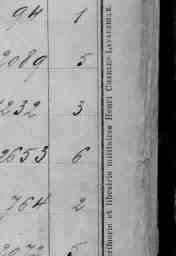 94 1
2089 5
1232 3
2653 6
764 2
2072 5
primerie et librairie militaires Henri CHARLES-LAVAUZELLE.